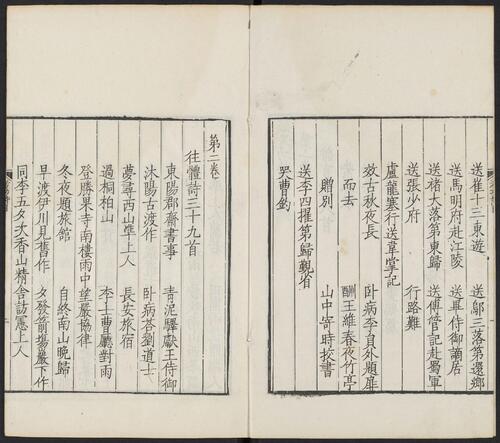 送崔十三東遊 送鄔三落第還鄉
送馬明府赴江陵 送畢侍御謫居
送褚大落第東歸 送傅管記赴蜀軍
送張少府 行路難
盧龍塞行送韋掌記
效古秋夜長 卧病李員外題扉
而去 酬王維春夜竹亭
贈別 山中寄時挍書
送李四擢第歸覲省
哭曹鈞
第二卷
往體詩三十九首
東陽郡齋書事 青泥驛獻王侍御
沐陽古渡作 卧病荅劉道士
夢尋西山準上人 長安旅宿
過桐柏山 李士曹廳對雨
登勝果寺南樓雨中望嚴協律
冬夜題旅館 自終南山晚歸
早渡伊川見舊作 夕發箭場巖下作
同李五夕次香山精舍訪憲上人